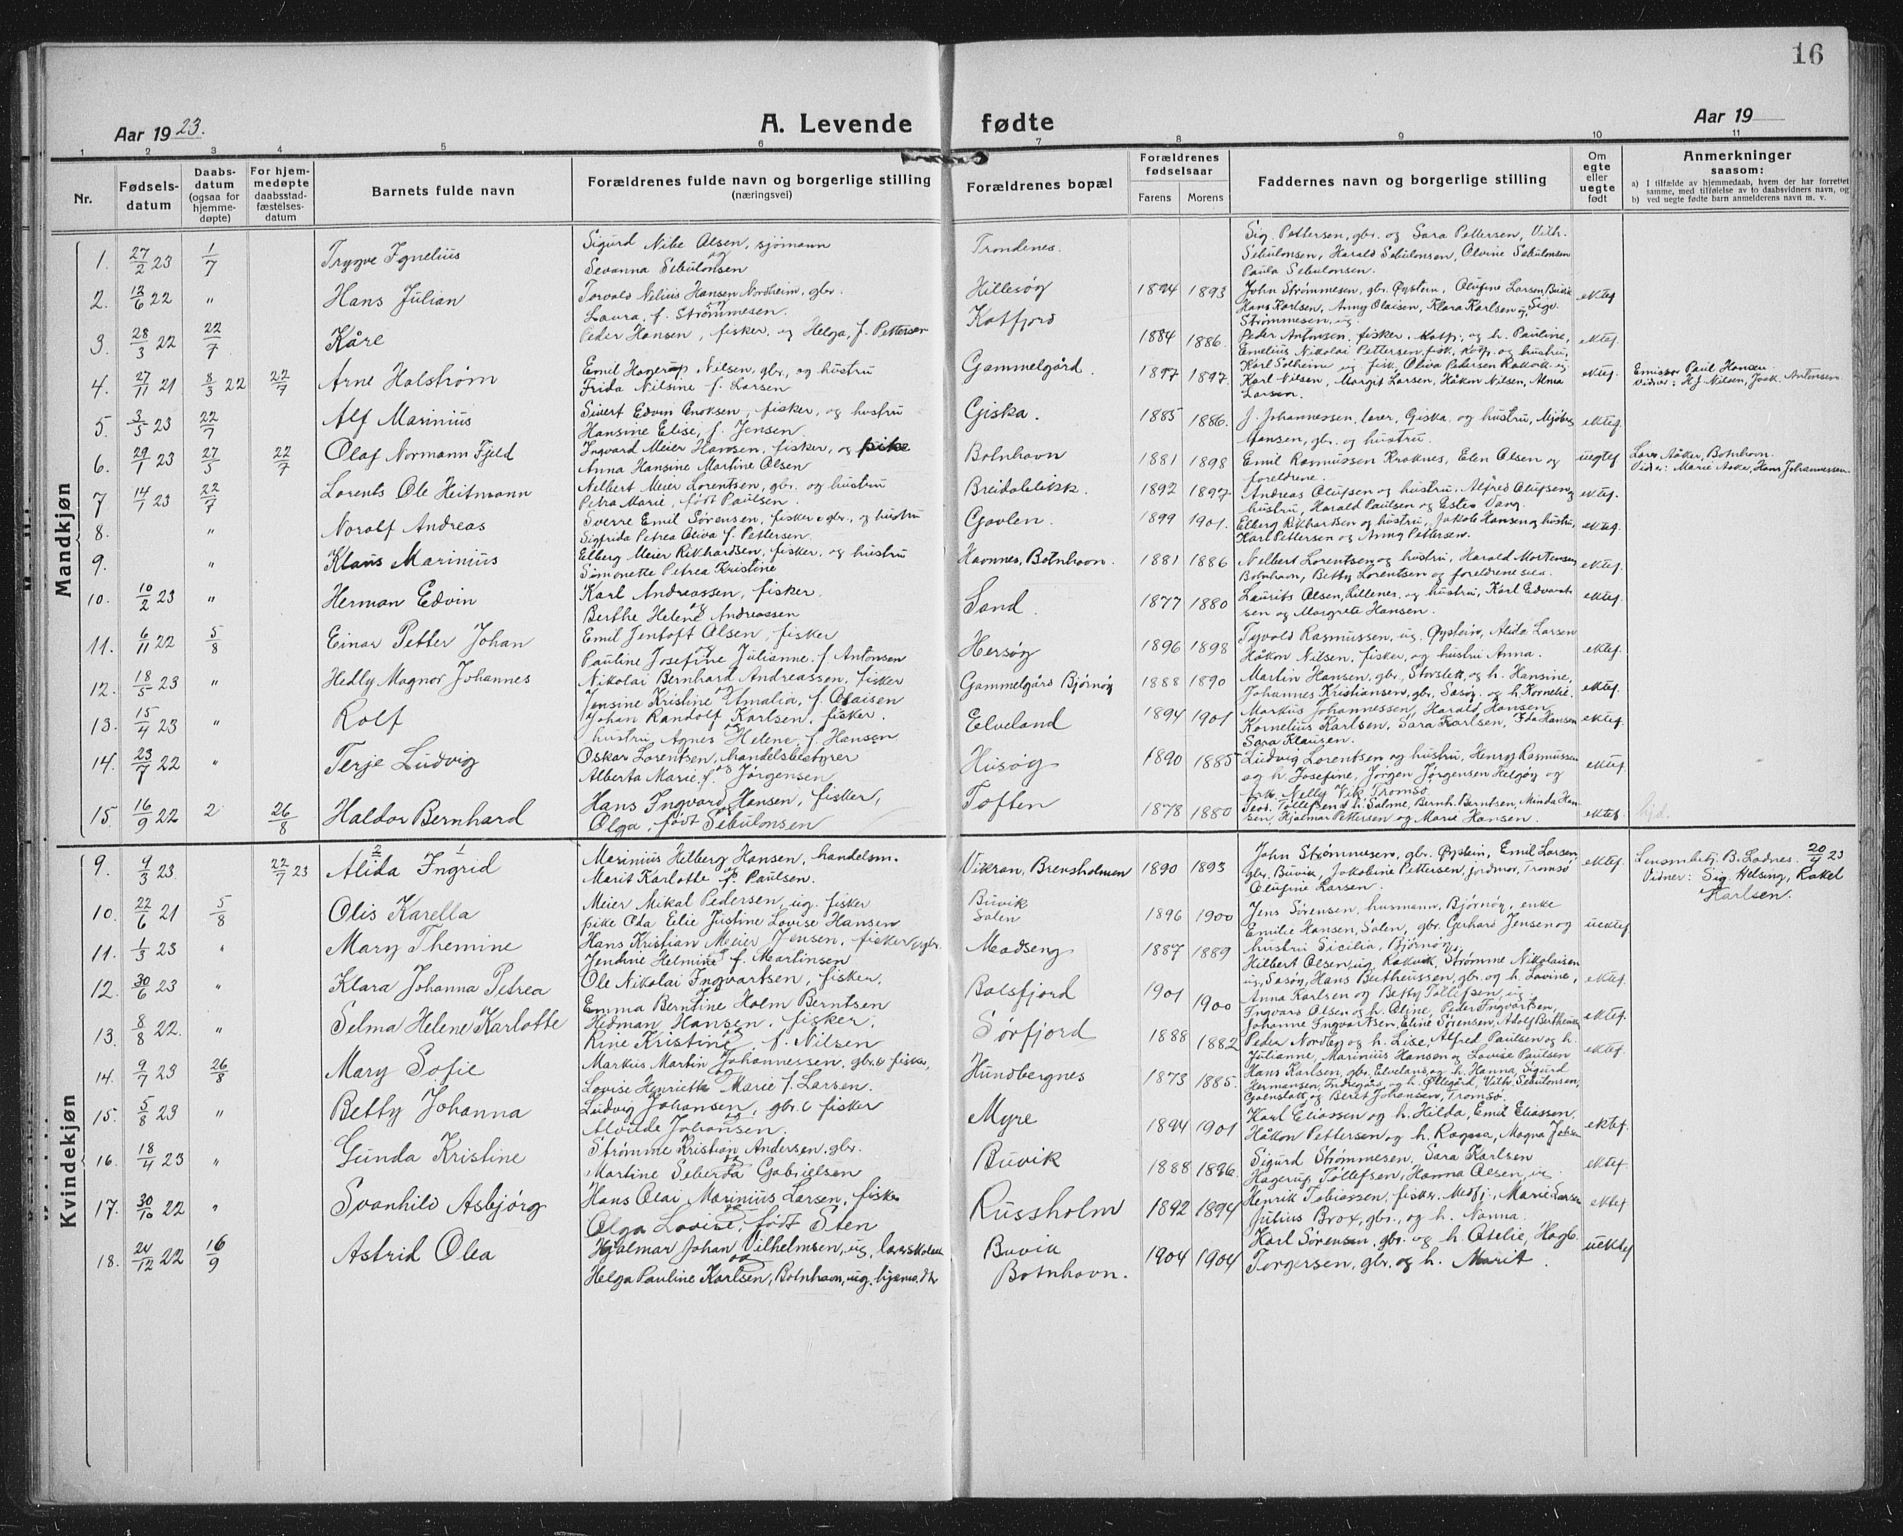 16
Aar 1923.
A. Levende fødte
Aar 19
1 2 3 4 5 6 7 8 9 10 11
Nr.
Fødsels-datum
Daabs-datum (ogsaa for hjemme-døpte)
For hjem-medøpte daabsstad-fæstelses-datum
Barnets fulde navn
Forældrenes fulde navn og borgerlige stilling (næringsvei)
Forældrenes bopæl
Forældrenes fødselsaar
Farens Morens
Faddernes navn og borgerlige stilling
Om egte eller uegte født
Anmerkninger saasom:
a) I tilfælde av hjemmedaab, hvem der har forrettet samme, med tilføielse av to daabsvidners navn, og
b) ved uegte fødte barn anmelderens navn m. v.
Mandkjøn
1. 27/2 23 1/7 Trygve Ignelius Sigurd Nibe Olsen, sjømann og Sevanna Sebulonsen Trondenes. Sig. Pettersen, gbr. og Sara Pettersen, Vith. Sebulonsen, Harald Sebulonsen, Olvine Sebulonsen Paula Sebulonsen.
2. 12/6 22 " Hans Julian Torvald Nelius Hansen Nordheim, gbr. og Laura, f. Strømmesen. Hillesøy 1894 1893 John Strømmesen, gbr. Øystein, Olufine Larsen, Buvik Hans Karlsen, Anny Olaisen, Klara Karlsen og Sigv. Strømmesen, ug. ektef.
3. 28/3 22 22/7 Kåre Peder Hansen, fisker, og Helga, f. Pettersen Katfjord 1884 1886 Peder Antonsen, fisker, Katfj. og h. Pauline, Emelius Nikolai Pettersen, fisk. Katfj. og hustru, ektef.
4. 27/11 21 8/3 22 22/7 Arne Halstrøm Emil Hagerup Nilsen, gbr., og hustru Frida Nilsine f. Larsen Gammelgård 1897 1897 Karl Solheim og fisk. Oliva Pedersen Rakvik ug Karl Nilsen, Margit Larsen, Håkon Nilsen, Alma Larsen. ektef. Emissær Paul Hansen Vidner: Hj. Nilsen, Joak. Antonsen
5. 3/5 23 22/7 Alf Marinius Sivert Edvin Enoksen, fisker, og hustru Hansine Elise, f. Jensen Giska. 1885 1886. J. Johannessen, lærer, Giska, og hustru, Hansen, gbr. og hustru. ektef.
6. 29/1 23 27/5 22/7 Olaf Normann Fjeld Ingvard Meier Hansen, fisker, og pike Anna Hansine Martine Olsen Botnhavn 1881 1898 Emil Rasmussen Kraknes, Elen Olsen og foreldrene. uegtef Lars Aaker, Botnhavn. Vidner: Marie Aaker, Hans Johannessen
7 14/1 23 22/7 Lorents Ole Heitmann Nelbert Meier Lorentsen, gbr. og hustru Petra Marie, født Paulsen. 1892 1897 Andreas Olufsen og hustru, Alfred Olufsen og hustru, Harald Paulsen og Ester Vang. ektef.
8. " Noralf Andreas Sverre Emil Sørensen, fisker e gbr., og hustru Sigfrida Petrea Oliva f. Pettersen. Gavlen. 1899 1901. Elberg Rikhardsen og hustru, Jakob Hansen og hustru, Karl Pettersen og Anny Pettersen. ektef.
9. " Klaus Marinius Elberg Meier Rikhardsen, fisker, og hustru Simonette Petrea Kristine Havnnes, Botnhavn. 1881 1886 Nelbert Lorentsen og hustru, Harald Mortensen Botnhavn, Betty Lorentsen og foreldrene selv. ektef.
10. 10/2 23 " Herman Edvin Karl Andreassen, fisker. og Berthe Helene Andreassen Sand. 1877 1880 Laurits Olsen, Lillenes, og hustru, Karl Edvardsen og Margrete Hansen. ektef.
11. 6/11 22 5/8 Einar Petter Johan Emil Jentoft Olsen, fisker og Pauline Josefine Julianne f. Antonsen Hersøy 1896 1898 Tyvold Rasmussen, ug. Øystein, Alida Larsen Håkon Nilsen, fisker, og hustru Anna. ektef.
12. 18/5 23 " Hedly Magnor Johannes Nikolai Bernhard Andreassen, fisker og Jensine Kristine Amalia, f. Olaisen Gammelgård Bjørnøy 1888 1890 Martin Hansen, gbr. Storslett, og h. Hansine, Johannes Kristiansen, gbr. Sasøy og h. Kornelie. ektef.
13. 15/4 23 " Rolf Johan Randolf Karlsen, fisker. og hustru, Agnes Helene, f. Hansen Elveland 1894 1901 Markus Johannessen, Harald Hansen Kornelius Karlsen, Sara Karlsen, Ida Hansen Sara Klausen. ektef.
14. 23/7 22 " Terje Ludvig Oskar Lorentsen, handelsbestyrer og Alberta Marie, f. Jørgensen Husøy 1890 1885 Ludvig Lorentsen og hustru, Henry Rasmussen og h. Josefine, Jørgen Jørgensen Helgøy og frk. Nelly Vik Tromsø. ektef.
15. 16/9 22 2 26/8 Haldor Bernhard Hans Ingvard Hansen, fisker, og Olga, født Sebulonsen Toften 1878 1880 Teod. Tollefsen, h. Salme, Bernh. Berntsen, Minda Hansen, Hjalmar Pettersen og Marie Hansen. ektef. hjd.
Kvindekjøn
9. 4/3 23 22/7 23 Alida 2 Ingrid 1 Marinius Hilberg Hansen, handelsm. Marit Karlotte f. Paulsen. Vikran, Brensholmen 1890 1893 John Strømmesen, gbr. Øystein, Emil Larsen gbr. Buvik, Jakobine Pettersen, jordmor, Tromsø Olufine Larsen. ektef. Lensmbetj. B. Ladnes. 20/4 23 Vidner: Sig. Helsing, Rakel Karlsen.
10. 22/6 21 5/8 Olis Karella Meier Mikal Pedersen, ug. fisker pike Oda Elie Justine Lovise Hansen Buvik Solen 1896 1900 Jens Sørensen, husmann, Bjørnøy, enke Emilie Hansen, Solen, gbr. Gerhard Jensen og hustru Sicilia, Bjørnøy. uektef.
11. 1/3 23 " Mary Themine Hans Kristian Meier Jensen, fisker og gbr. Jendine Helmine f. Martinsen Madseng 1887 1889 Hilbert Olsen, ug. Rakvik, Strømme Nikolaisen ug. Sasøy, Hans Bertheussen, gbr. og h. Lovine, ektef.
12. 30/6 23 " Klara Johanna Petrea Ole Nikolai Ingvartsen, fisker, og Emma Berntine Holm Berntsen Balsfjord 1901 1900 Anna Karlsen og Betty Tollefsen, ug Ingvard Olsen og h. Oline, Peder Ingvartsen ektef.
13. 8/8 22. " Selma Helene Karlotte Hedman Hansen, fisker, og Rine Kristine, f. Nilsen Sørfjord 1888 1882 Johanne Ingvartsen, Eline Sørensen, Adolf Bertheusen Peder Nordby og h. Lise, Alfred Paulsen og h. Julianne, Marinius Hansen og Lovise Paulsen ektef.
14. 9/7 23 26/8 Mary Sofie Markus Martin Johannessen, gbr. & fisker, og Lovise Henriette Marie f. Larsen. Hundbergnes 1873 1885. Hans Karlsen, gbr. Elveland og h. Hanna, Sigurd Hermansen, og h. Ottegård, Vith. Sebulonsen, og Beret Johansen, Tromsø.
15. 5/8 23 " Betty Johanna Ludvig Johansen, gbr. & fisker Alvilde Johansen. Myre 1894 1901 Karl Eliassen og h. Hilda, Emil Eliassen, Håkon Pettersen og h. Ragna, Magna Johsen ektef.
16. 18/4 23 " Gunda Kristine Strømme Kristian Andersen, gbr. og Martine Seberta Gabrielsen Buvik 1888 1896 Sigurd Strømmesen, Sara Karlsen Hagerup Tollefsen, Hanna Olsen, ug. ektef.
17. 30/10 22 " Svanhild Asbjørg Hans Olai Marinius Larsen, fisker og Olga Lovise, født Sten Russholm 1892 1894 Henrik Tobiassen, fisker, Medfj., Marie Larsen Julius Brox, gbr., og h. Nanna. ektef
18. 24/12 22 16/9 Astrid Olea Hjalmar Johan Vilhelmsen, ug. og Helga Pauline Karlsen, Botnhavn, ug. Buvik Botnhavn. 1904 1904 Karl Sørensen, gbr. og h. Atelie, Hagb. Torgersen, gbr. og h. Marit. uektef